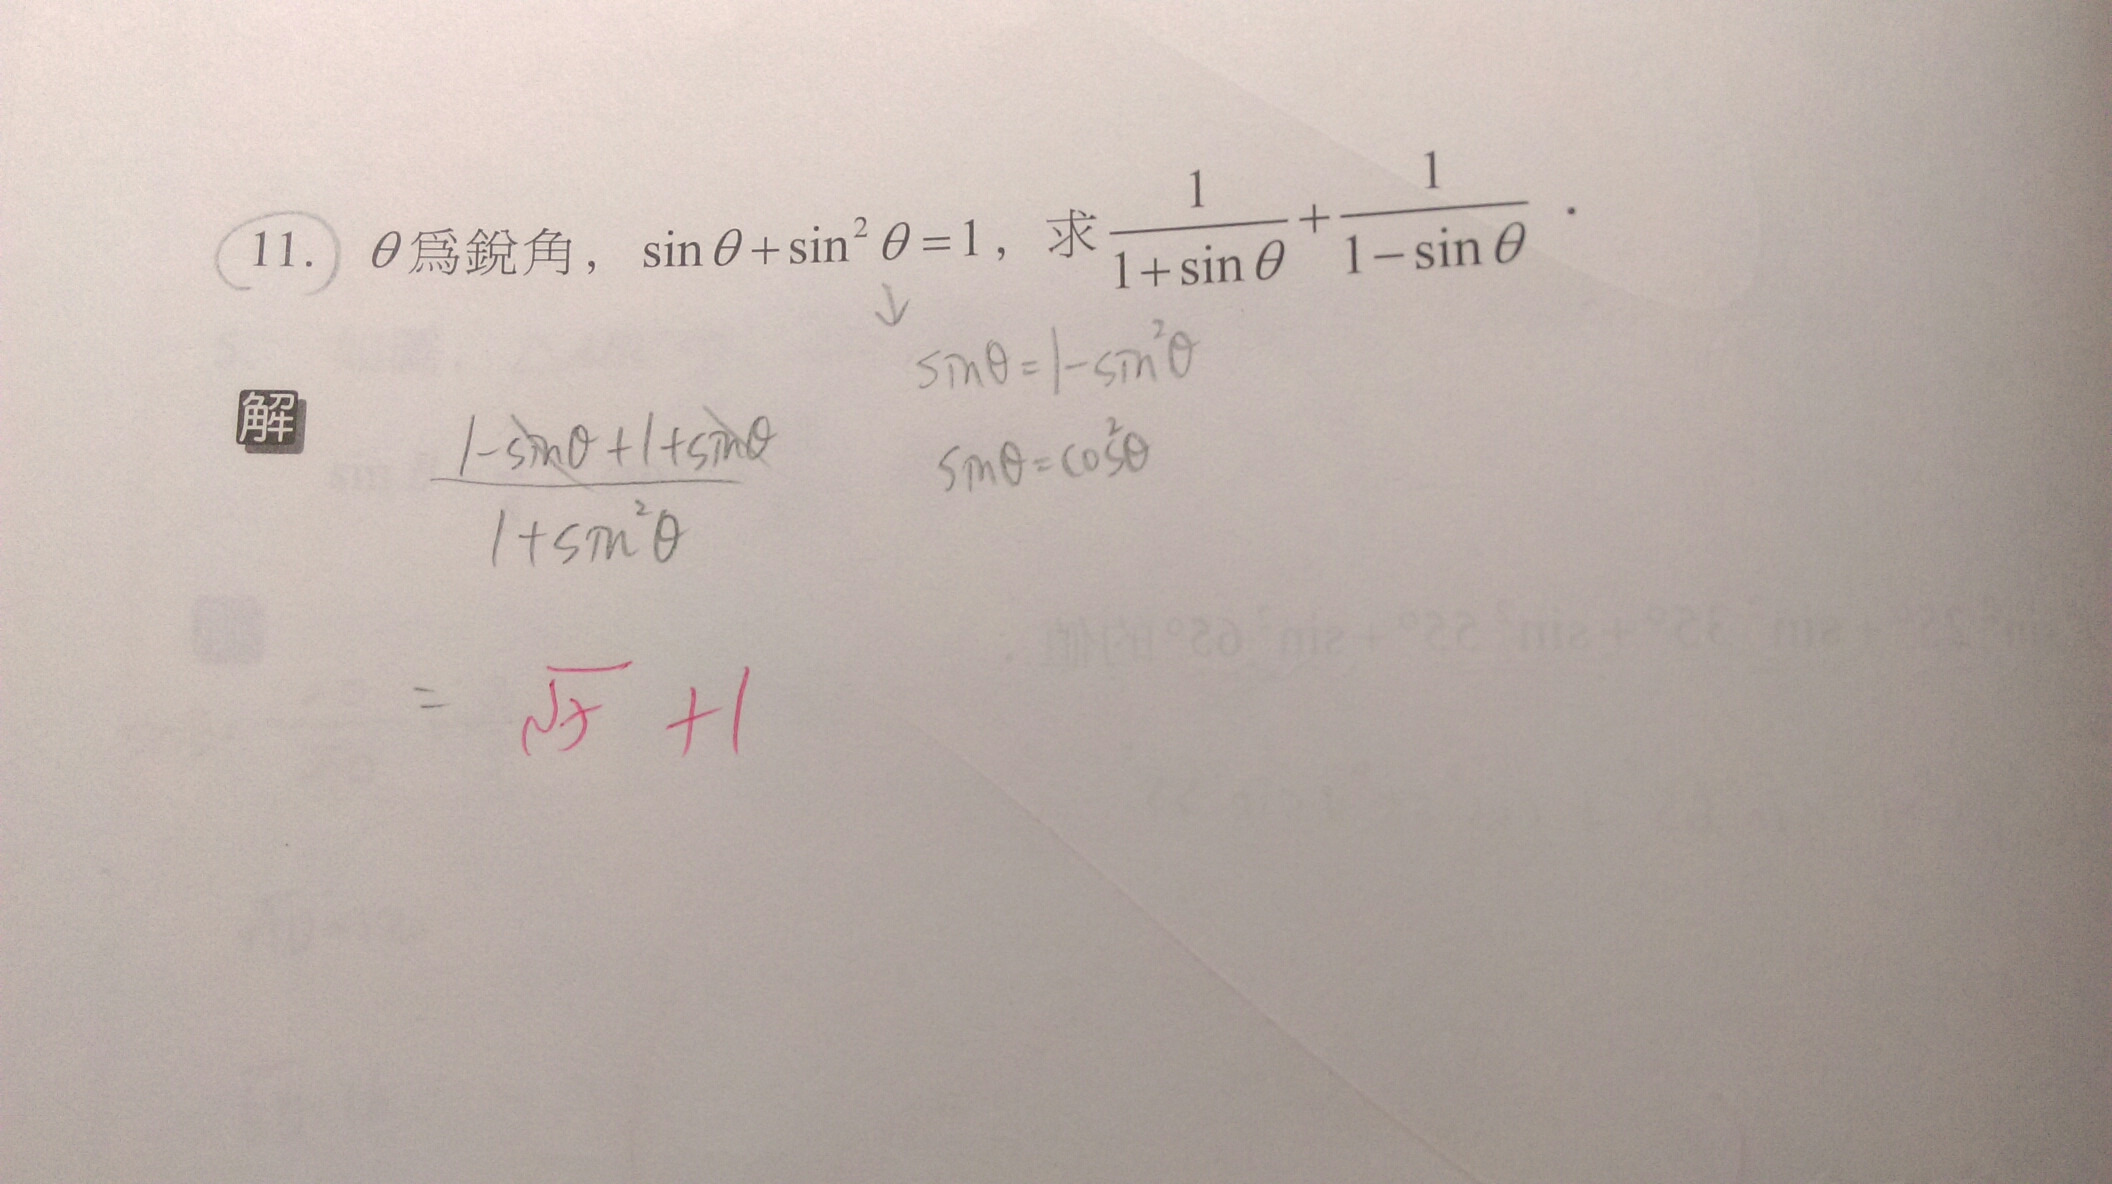 11. θ爲銳角，sin θ + sin² θ = 1，求 1/(1+sin θ) + 1/(1−sin θ) .
↓
sinθ = 1 − sin²θ
解
(1 − sinθ + 1 + sinθ)/(1 + sin²θ)
sinθ = cos²θ
= √5 + 1